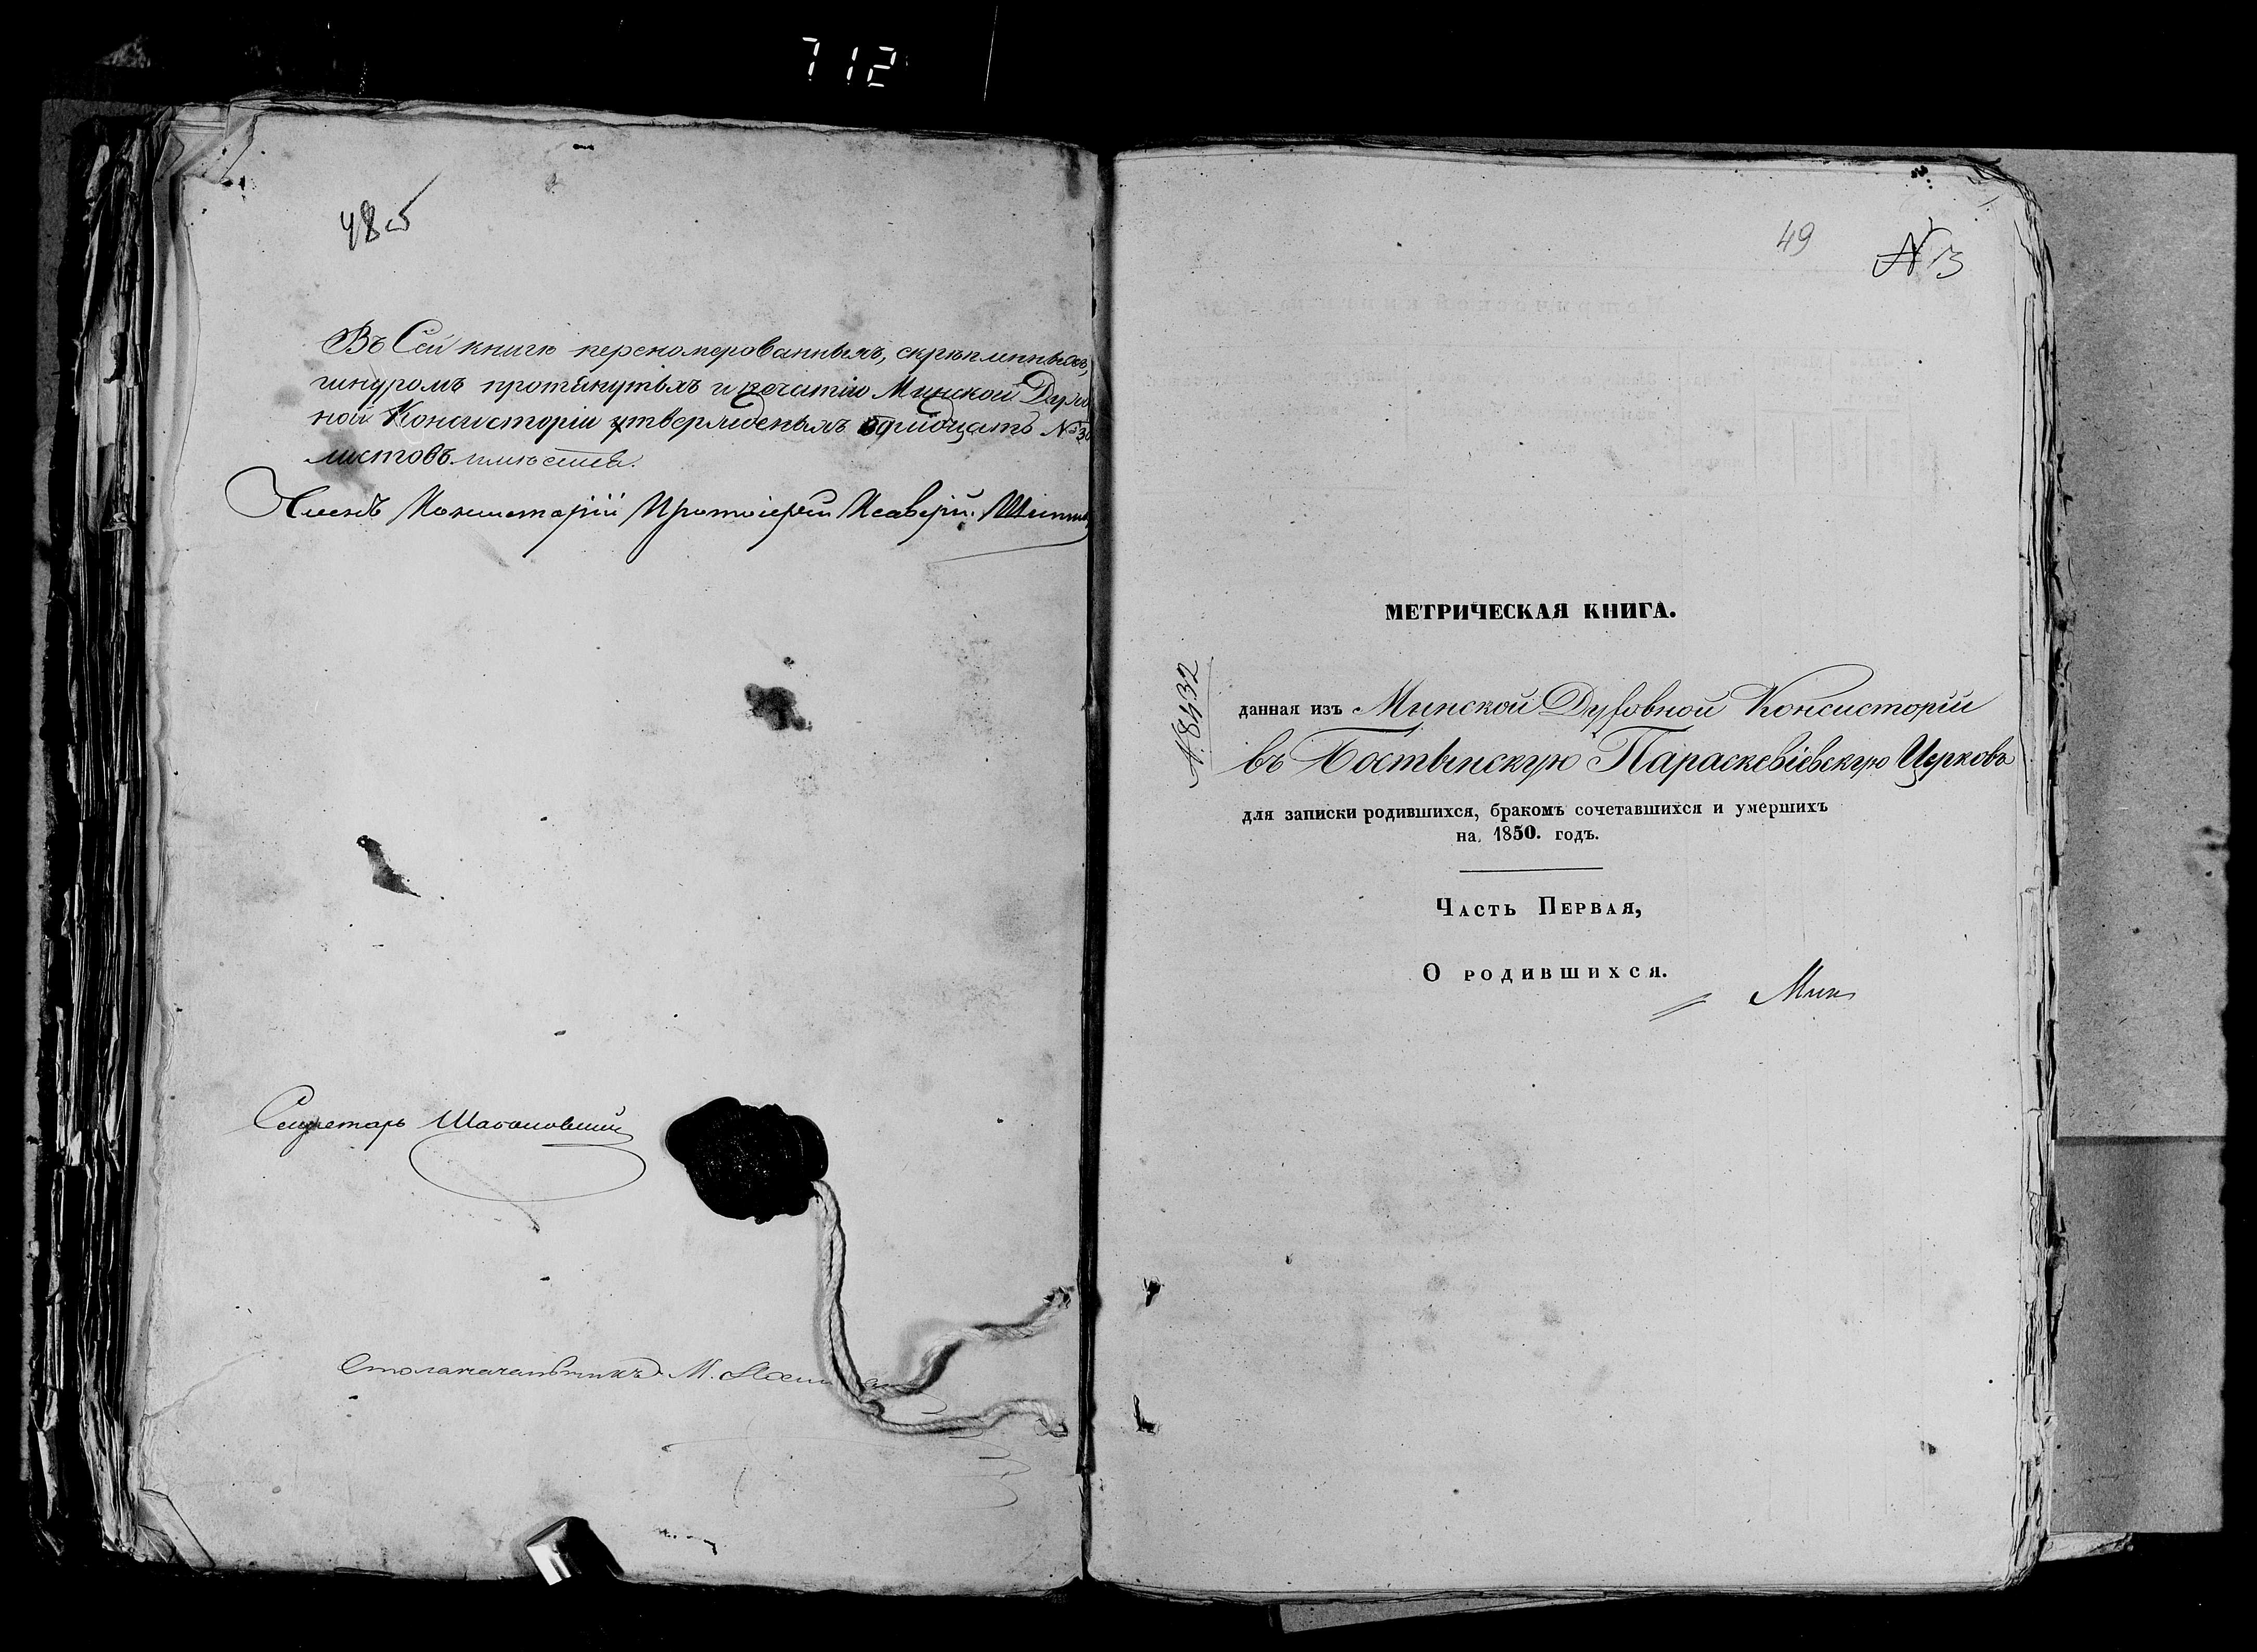 712
48 об
Въ Сей книгѣ перенумерованныхъ, скрѣпленныхъ,
шнуромъ протянутыхъ и печатью Минской Духов
ной Консисторіи утвержденыхъ тридцать № 30
листовъ
Членъ Консисторіи Протоіерей Ксаверій
Секретарь
Столоначальникъ М.
49
№ 13
МЕТРИЧЕСКАЯ КНИГА.
данная изъ Минской Духовной Консисторіи
въ Бостынскую Параскевіевскую Церковь
для записки родившихся, бракомъ сочетавшихся и умершихъ
на 1850. годъ.
ЧАСТЬ ПЕРВАЯ,
О РОДИВШИХСЯ.